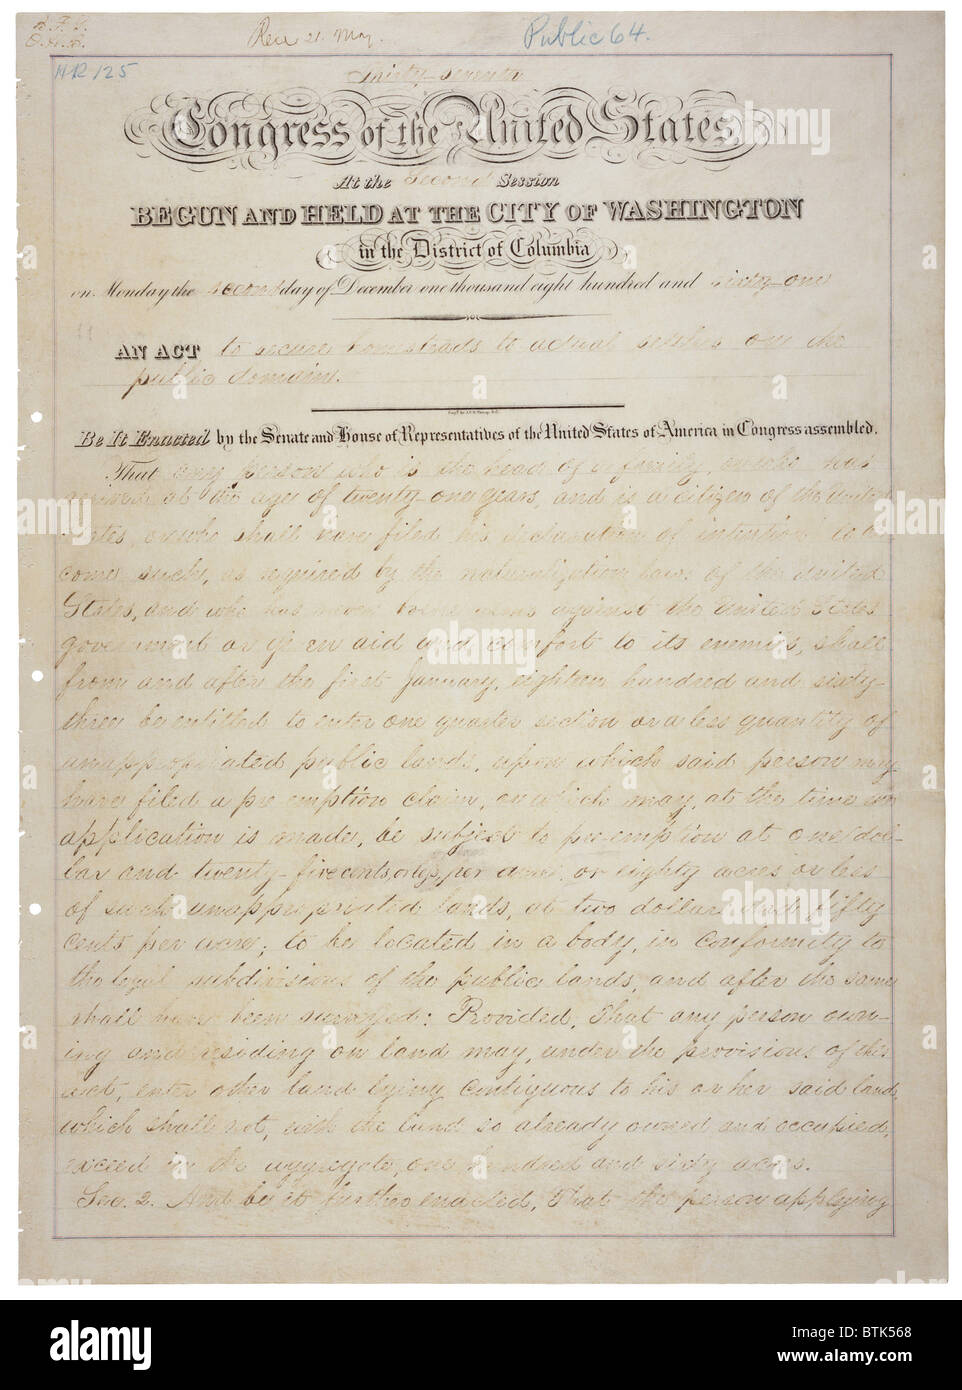 Rec 21. May.
Public 64.
HR 125
Thirty-Seventh
Congress of the United States
At the Second Session
BEGUN AND HELD AT THE CITY OF WASHINGTON
in the District of Columbia
on Monday the second day of December one thousand eight hundred and sixty-one
AN ACT to secure homesteads to actual settlers on the
public domain.
Be It Enacted by the Senate and House of Representatives of the United States of America in Congress assembled.
That any person who is the head of a family, or who has
arrived at the age of twenty-one years, and is a citizen of the United
States, or who shall have filed his declaration of intention to be
come such, as required by the naturalization laws of the United
States, and who has never borne arms against the United States
government or given aid and comfort to its enemies, shall
from and after the first January, eighteen hundred and sixty-
three be entitled to enter one quarter section or a less quantity of
unappropriated public lands, upon which said person may
have filed a pre emption claim, or which may, at the time
application is made, be subject to pre-emption at one dol-
lar and twenty-five cents, or less, per acre; or eighty acres or less
of such unappropriated lands, at two dollars and fifty
cents per acre; to be located in a body, in conformity to
the legal subdivisions of the public lands, and after the same
shall have been surveyed: Provided, That any person own-
ing and residing on land may, under the provisions of this
act, enter other land lying contiguous to his or her said land,
which shall not, with the land so already owned and occupied,
exceed in the aggregate one hundred and sixty acres.
Sec. 2. And be it further enacted, That the person applying
alamy
Image ID: BTK568
www.alamy.com